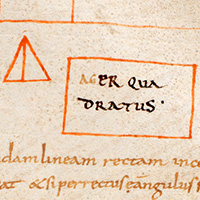 AGER QUA
DRATUS·
dam lineam rectam in co
at & si perrectus eangulus i